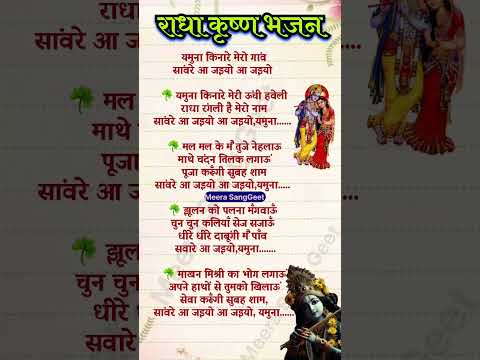 राधा कृष्ण भजन
यमुना किनारे मेरो गांव
सांवरे आ जइयो आ जइयो
यमुना किनारे मेरी ऊंची हवेली
राधा रंगली है मेरो नाम
सांवरे आ जइयो आ जइयो,यमुना......
मल मल के मैं तुजे नेहलाऊ
माथे चंदन तिलक लगाऊं
पूजा करूँगी सुबह शाम
सांवरे आ जइयो आ जइयो,यमुना.....
Meera SangGeet
झूलन को पलना मँगवाऊँ
चुन चुन कलियाँ सेज सजाऊँ
धीरे धीरे दाबूंगी मैं पाँव
सवारे आ जइयो,यमुना.......
माखन मिश्री का भोग लगाऊं
अपने हाथों से तुमको खिलाऊं
सेवा करूँगी सुबह शाम,
सांवरे आ जइयो आ जइयो, यमुना......